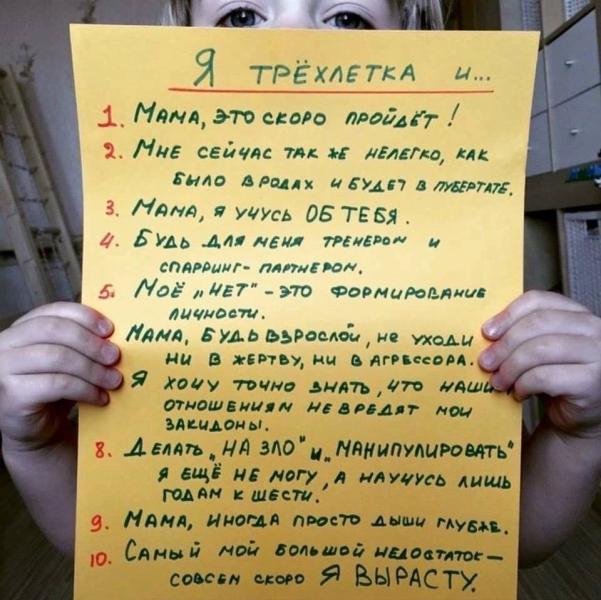 Я ТРЁХЛЕТКА И...
1. МАМА, ЭТО СКОРО ПРОЙДЁТ!
2. МНЕ СЕЙЧАС ТАК ЖЕ НЕЛЕГКО, КАК
БЫЛО В РОДАХ И БУДЕТ В ПУБЕРТАТЕ.
3. МАМА, Я УЧУСЬ ОБ ТЕБЯ.
4. БУДЬ ДЛЯ МЕНЯ ТРЕНЕРОМ И
СПАРРИНГ-ПАРТНЕРОМ.
5. МОЁ „НЕТ" - ЭТО ФОРМИРОВАНИЕ
ЛИЧНОСТИ.
МАМА, БУДЬ ВЗРОСЛОЙ, НЕ УХОДИ
НИ В ЖЕРТВУ, НИ В АГРЕССОРА.
Я ХОЧУ ТОЧНО ЗНАТЬ, ЧТО НАШИ
ОТНОШЕНИЯМ НЕ ВРЕДЯТ МОИ
ЗАКИДОНЫ.
8. ДЕЛАТЬ „НА ЗЛО" И „МАНИПУЛИРОВАТЬ"
Я ЕЩЁ НЕ МОГУ, А НАУЧУСЬ ЛИШЬ
ГОДАМ К ШЕСТИ.
9. МАМА, ИНОГДА ПРОСТО ДЫШИ ГЛУБЖЕ.
10. САМЫЙ МОЙ БОЛЬШОЙ НЕДОСТАТОК —
СОВСЕМ СКОРО Я ВЫРАСТУ.